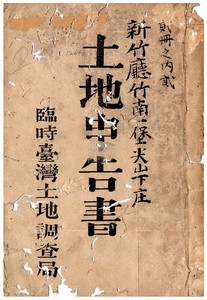 貳冊之内貳
新竹廳竹南一堡尖山下庄
土地申告書
臨時臺灣土地調查局